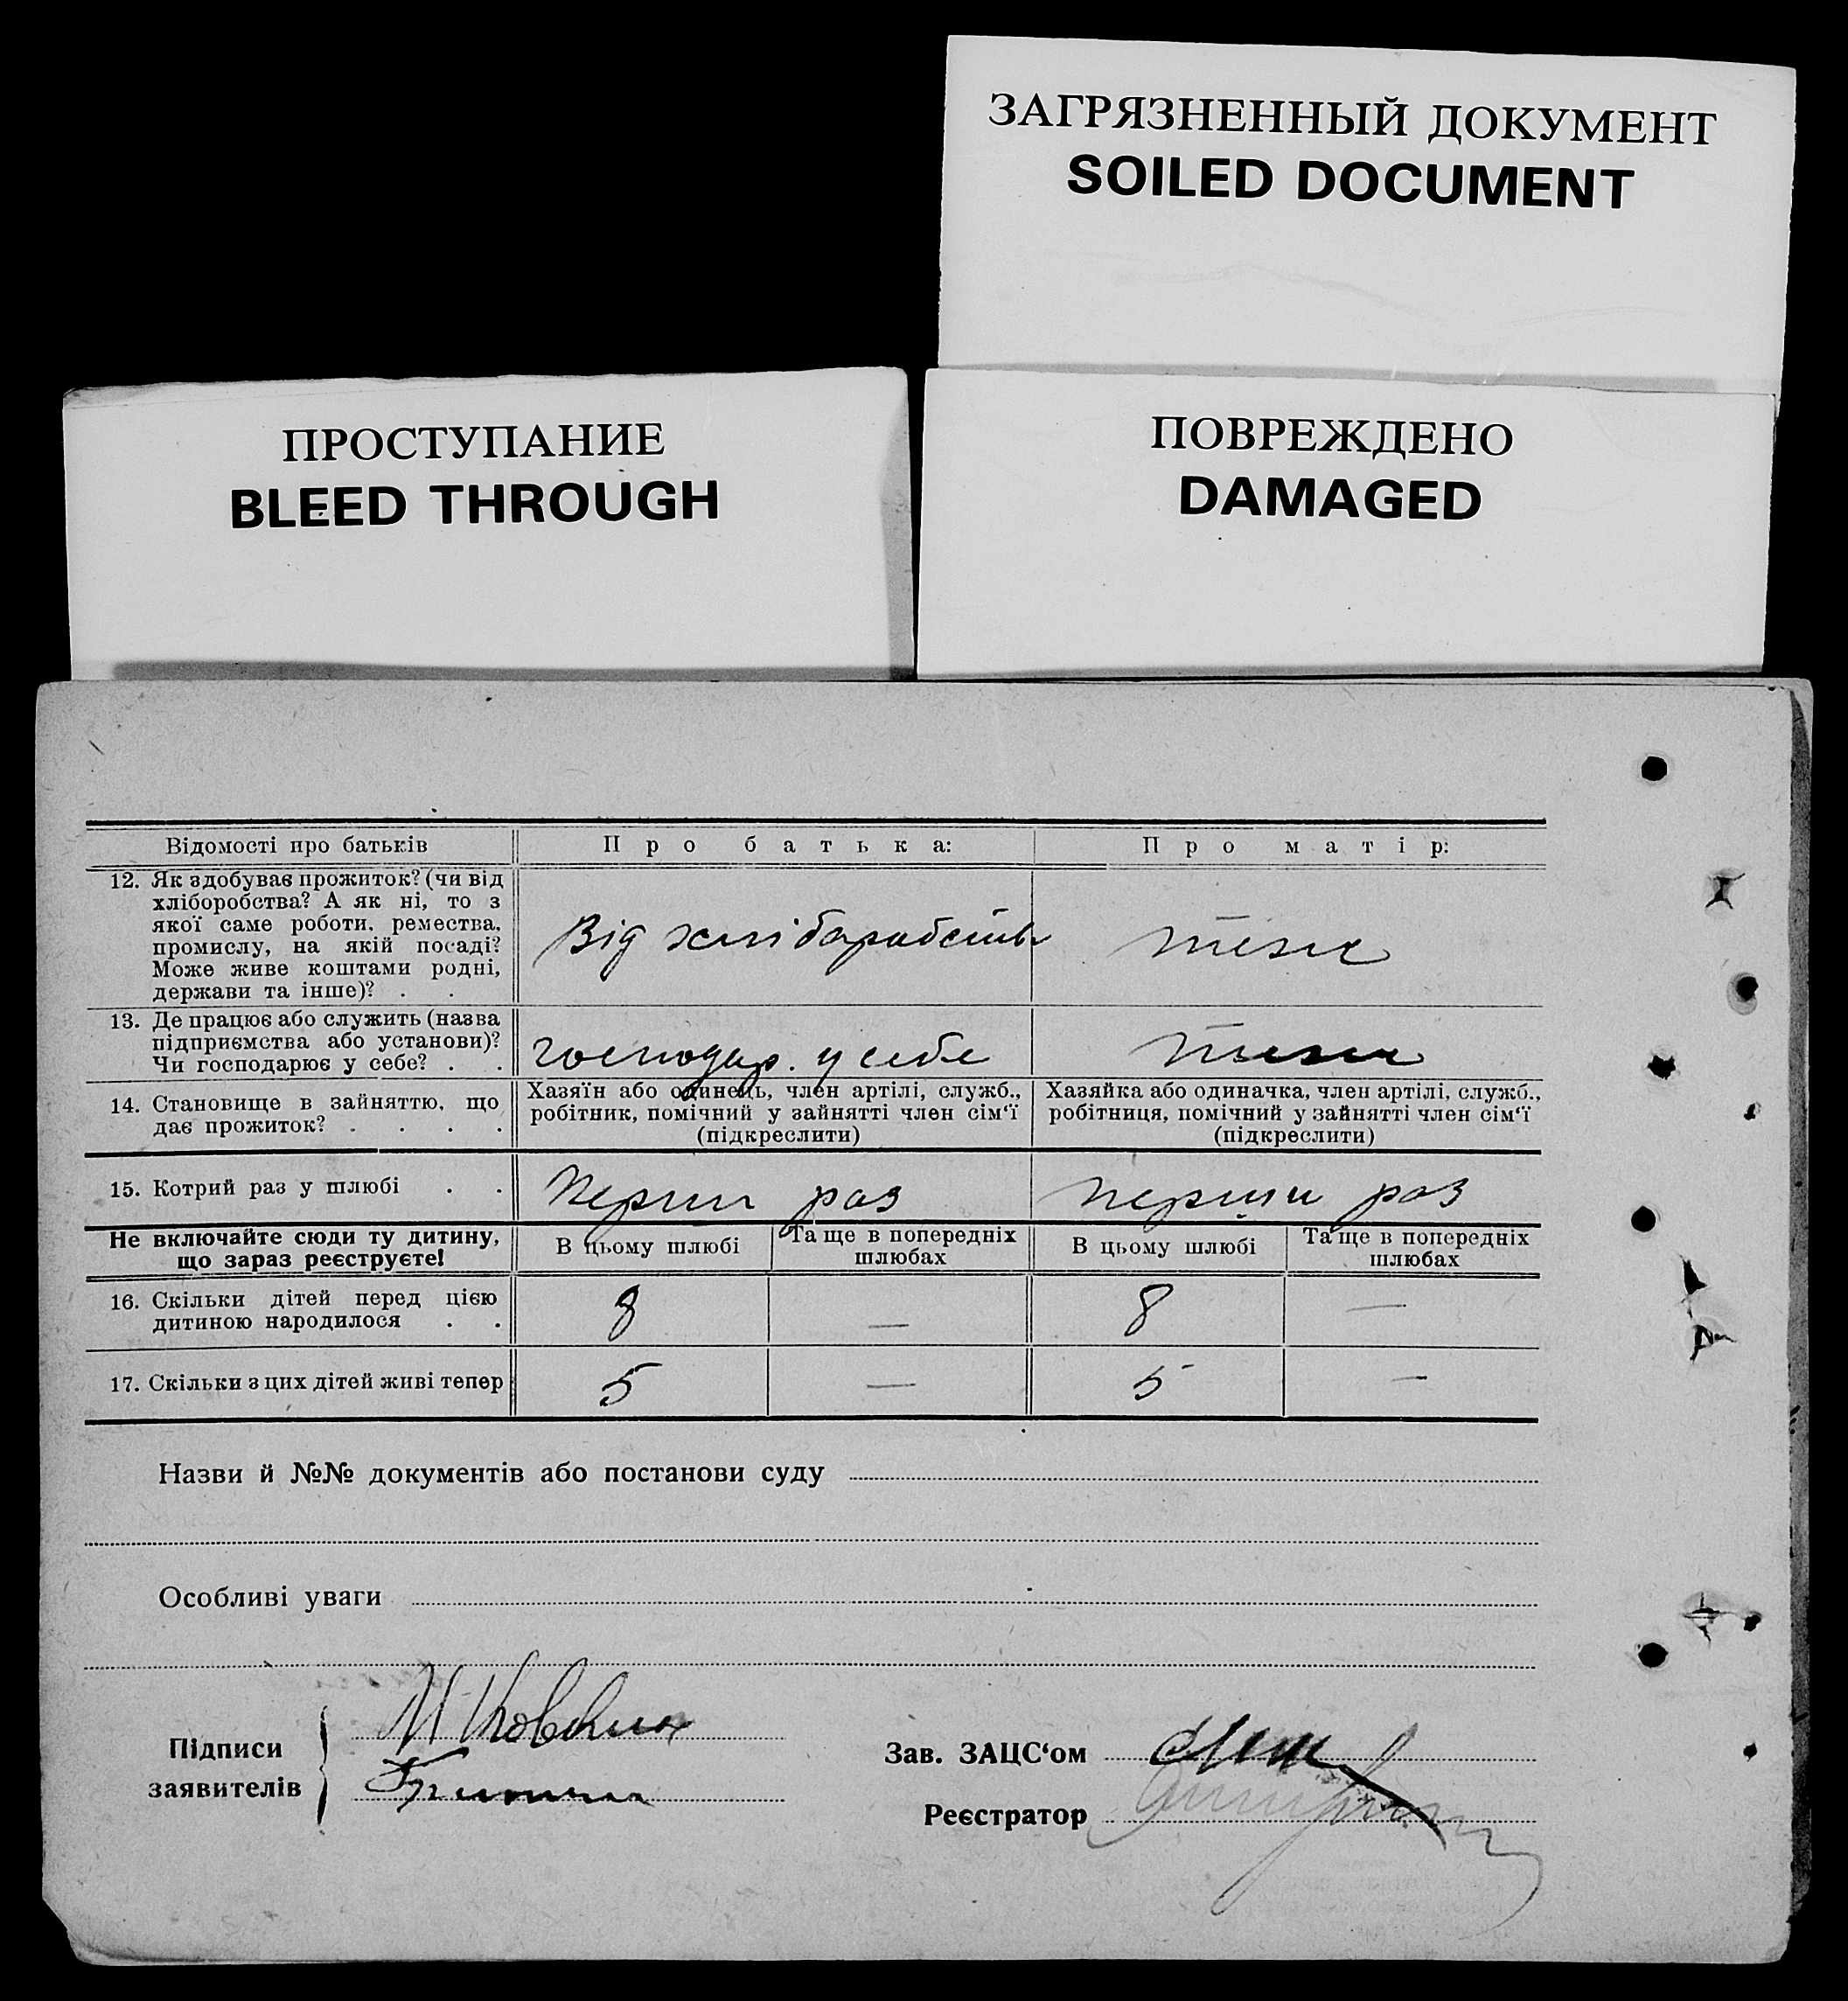 ЗАГРЯЗНЕННЫЙ ДОКУМЕНТ
SOILED DOCUMENT
ПРОСТУПАНИЕ
BLEED THROUGH
ПОВРЕЖДЕНО
DAMAGED
Відомості про батьків
Про батька:
Про матір:
12. Як здобуває прожиток? (чи від
хліборобства? А як ні, то з
якої саме роботи, ремества,
промислу, на якій посаді?
Може живе коштами родні,
держави та інше)? . .
Від хліборобства
теж
13. Де працює або служить (назва
підприємства або установи)?
Чи господарює у себе? . .
господар. у себе
теж
14. Становище в зайняттю, що
дає прожиток? . . . .
Хазяїн або одинець, член артілі, служб.,
робітник, помічний у зайнятті член сім'ї
(підкреслити)
Хазяйка або одиначка, член артілі, служб.,
робітниця, помічний у зайнятті член сім'ї
(підкреслити)
15. Котрий раз у шлюбі . .
перши раз
перши раз
Не включайте сюди ту дитину,
що зараз реєструєте!
В цьому шлюбі
Та ще в попередніх
шлюбах
В цьому шлюбі
Та ще в попередніх
шлюбах
16. Скільки дітей перед цією
дитиною народилося . .
8 — 8 —
17. Скільки з цих дітей живі тепер
5 — 5 —
Назви й №№ документів або постанови суду
Особливі уваги
Підписи
заявителів
Зав. ЗАЦС'ом
Реєстратор